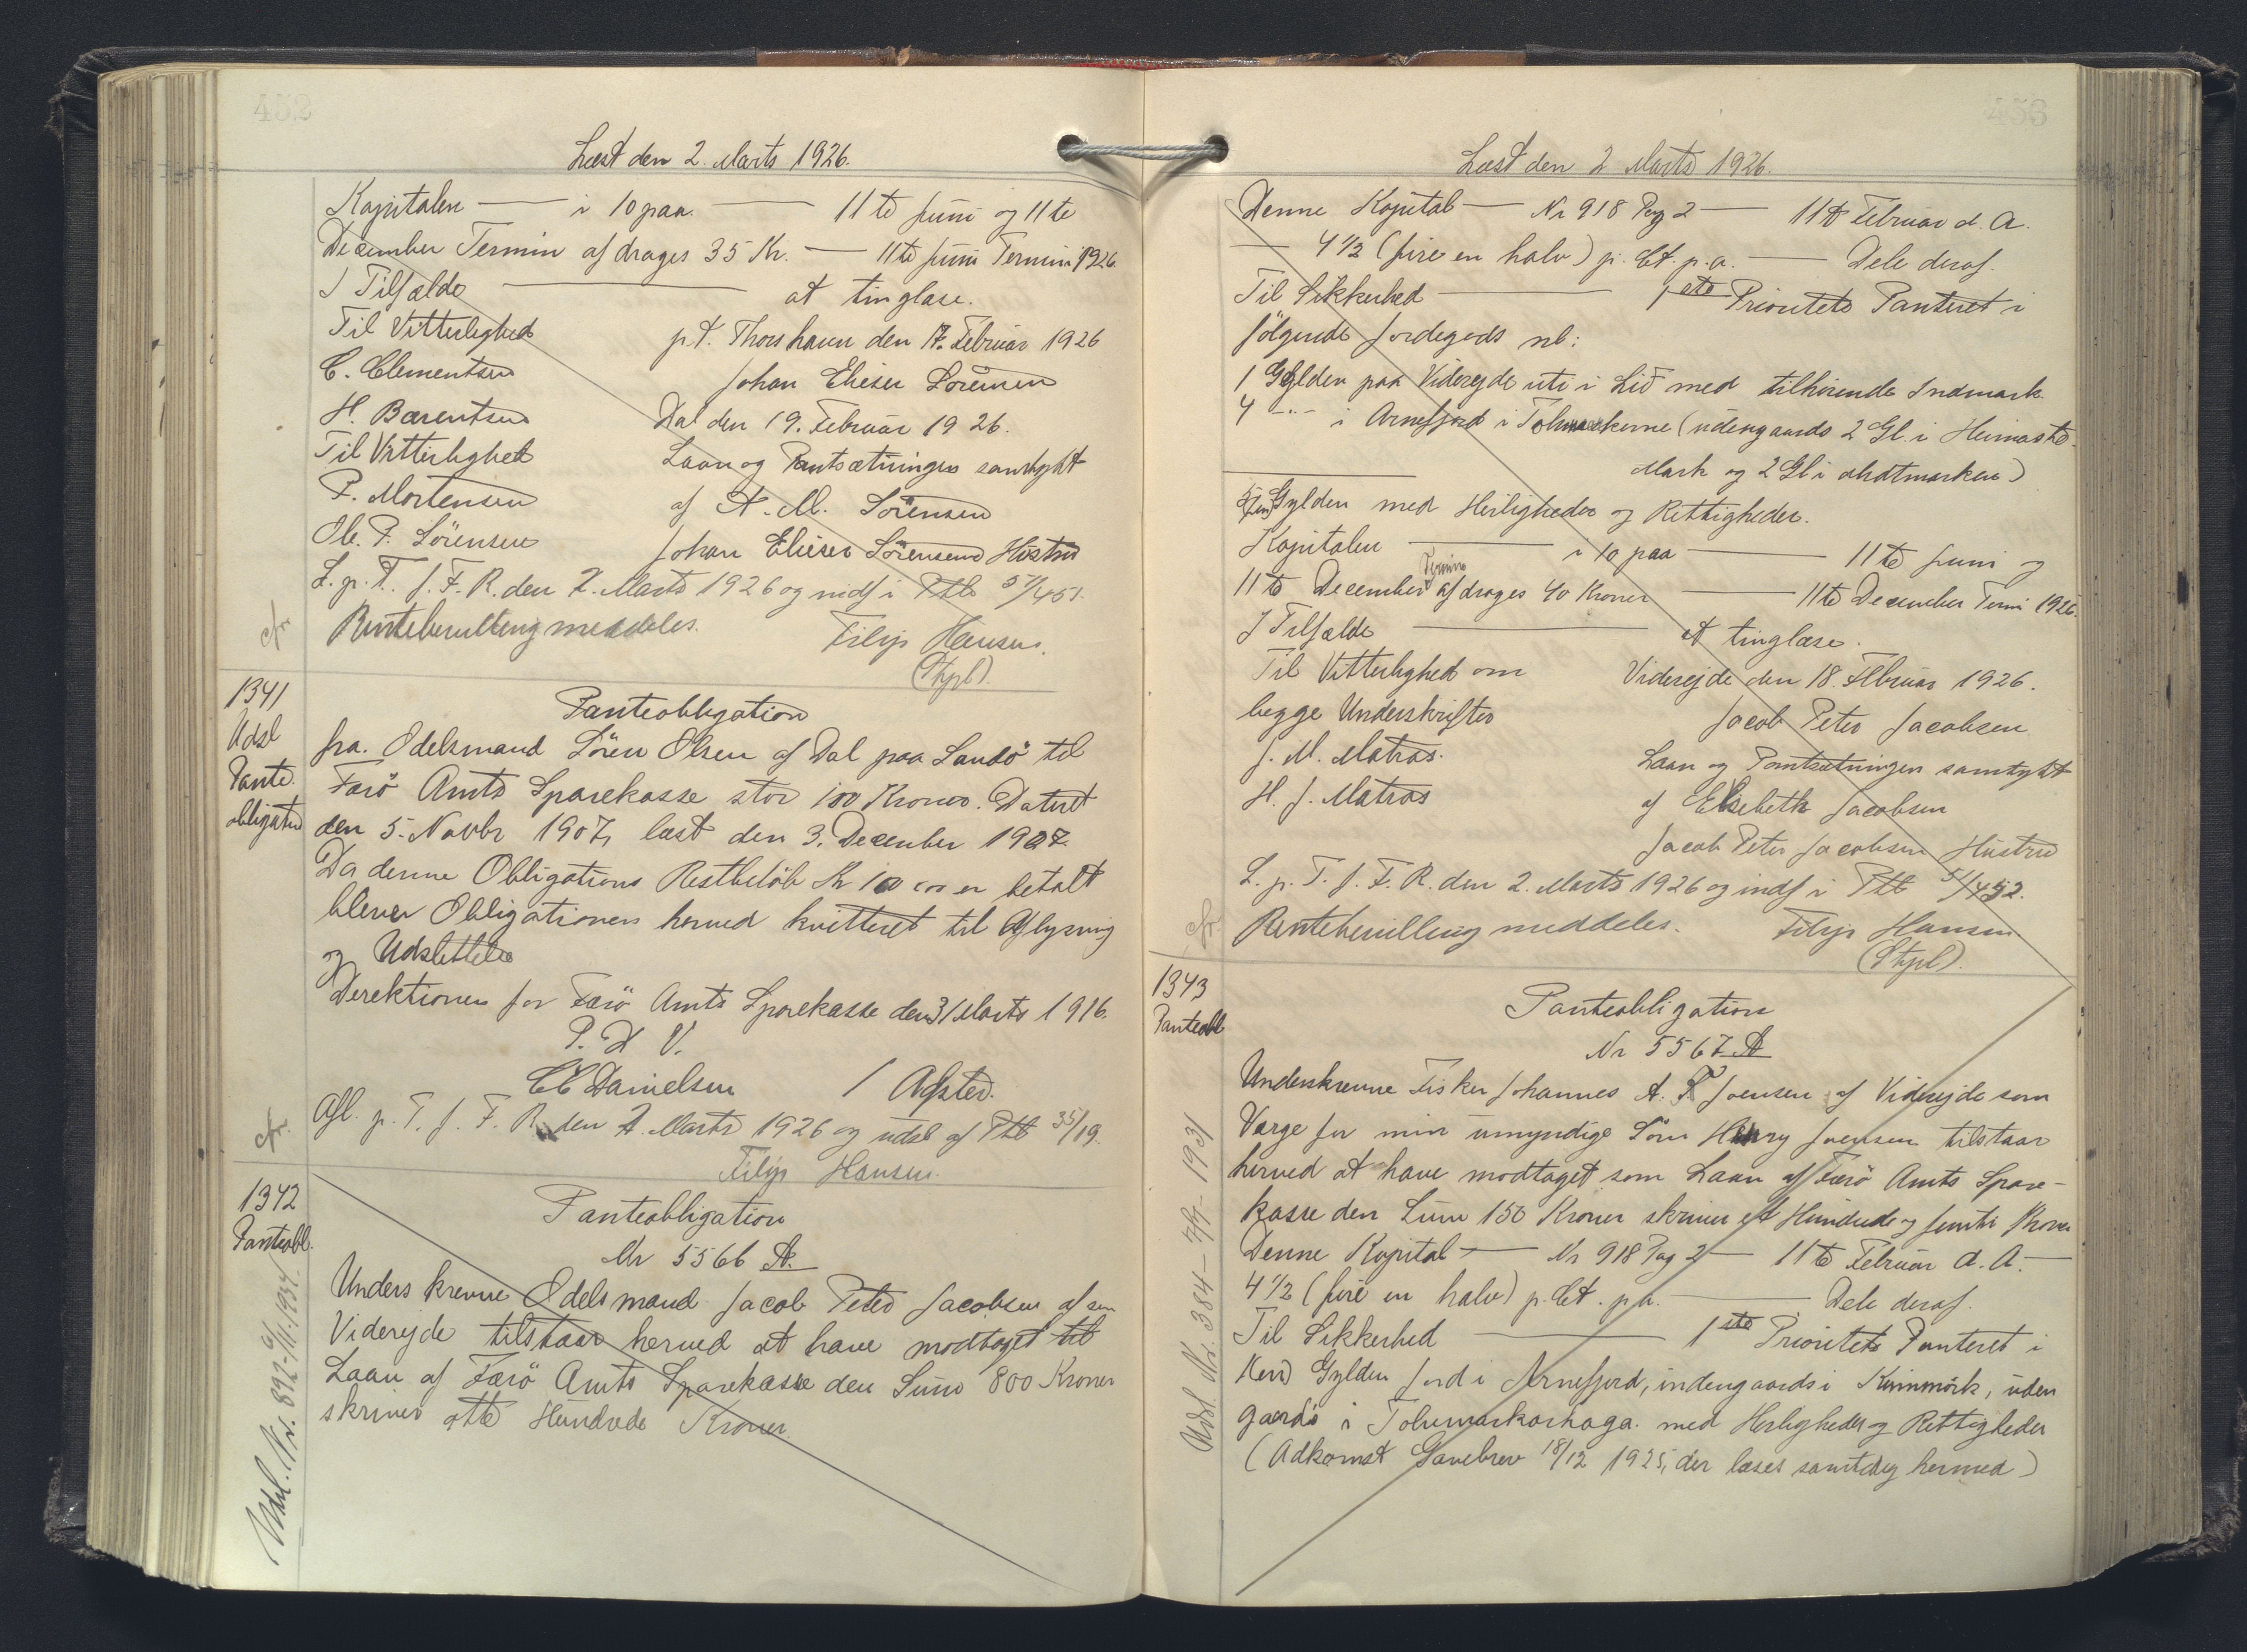 452
Læst den 2. Marts 1926.
Kapitalen — i 10 paa. — 11te Juni og 11te
December Termin afdrages 35 Kr. — 11te Juni Termin 1926
I Tilfælde — at tinglæse.
Til Vitterlighed p.t. Thorshavn den 17. Februar 1926
C. Clementsen Johan Elieser Sörensen
H. Barentsen Dal den 19. Februar 1926.
Til Vitterlighed Laan og Pantsætningen samtykt
P. Mortensen af A. M. Sörensen
Ole. P. Sörensen Johan Elieser Sörensens Hustru
L. p. T. f. F. R. den 2. Marts 1926 og indf i Ptb 57/451.
cfr. Rentebevilling meddeles. Filip Hansen.
(Stpl).
1341
Udsl
Pante
obligation
Panteobligation
fra Odelsmand Sören Olsen af Dal paa Sandö til
Færö Amts Sparekasse stor 100 Kroner. Dateret
den 5. Novbr 1907, læst den 3. December 1907.
Da denne Obligations Restbelöb Kr 100 00 er betalt
bliver Obligationen herved kvitteret til Aflysning
og Udslettelse
Direktionen for Færö Amts Sparekasse den 31 Marts 1916.
P. D V.
CC Danielsen / Agsted.
cfr. Afl. p. T. f. F. R. den 2. Marts 1926 og udsl af Ptb 35/19.
Filip Hansen.
1342
Panteobl.
Panteobligation
Nr 5566 A.
Underskrevne Odelsmand Jacob Peter Jacobsen af
Videreyde tilstaar herved at have modtaget til som
Laan af Færö Amts Sparekasse den Sum 800 Kroner
skriver otte Hundrede Kroner.
Udsl. Nr. 892 - 6/11. 1934.
453
Læst den 2 Marts 1926.
Denne Kapital — Nr 918 Pag 2 — 11te Februar d. A.
— 4 1/2 (fire en halv) p. Ct. p. a. — Dele deraf.
Til Sikkerhed — 1ste Prioritets Panteret i
fölgende Jordegods nl:
1 Gylden paa Videreyde uti i Lid med tilhörende Indmark.
4 -"- i Arnefjord i Tolvmarkerne (udengaards 2 Gl. i Heimasta
Mark og 2 Gl i Midtmarken)
5 fem Gylden med Herligheder og Rettigheder.
Kapitalen — i 10 paa — 11te Juni og
11te December Termin afdrages 40 Kroner — 11te December Term 1926.
I Tilfælde — at tinglæse.
Til Vitterlighed om Viderejde den 18. Februar 1926.
begge Underskrifter Jacob Peter Jacobsen
J. M. Matras. Laan og Pantsætningen samtykt
H. J. Matras af Elsebeth Jacobsen
Jacob Peter Jacobsen Hustru
L. p. T. f. F. R. den 2. Marts 1926 og indf i Ptb 57/452.
cfr. Rentebevilling meddeles. Filip Hansen
(Stpl).
1343
Panteobl
Panteobligation
Nr 5567 A
Underskrevne Fisker Johannes A. F Joensen af Viderejde som
Værge for min umyndige Sön Henry Joensen tilstaar
herved at have modtaget som Laan af Færö Amts Spare-
kasse den Sum 150 Kroner skriver et Hundrede og femti Kroner
Denne Kapital — Nr 918 Pag 2 — 11te Februar d. A. —
4 1/2 (fire en halv) p. Ct. p. a. — Dele deraf.
Til Sikkerhed — 1ste Prioritets Panteret i
Gylden Jord i Arnefjord, indengaards i Kinnmörk, uden
gaards i Tolvmarkarhaga. med Herligheder og Rettigheder
(Adkomst Gavebrev 18/12 1925, der læses samtidig hermed)